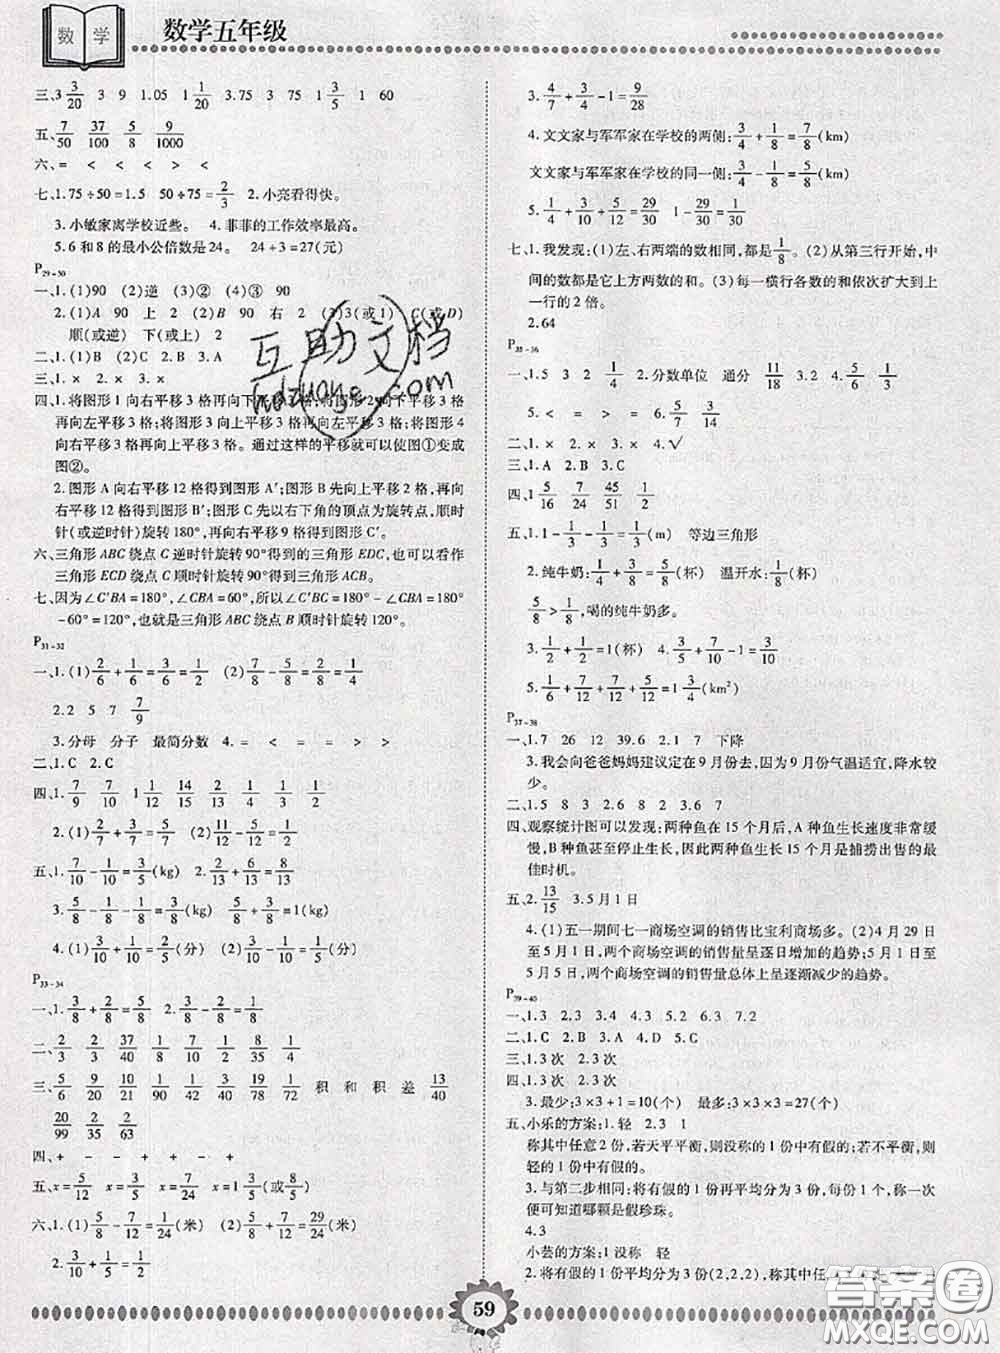 数学
数学五年级
三、3 3/20 3 9 1.05 1 1/20 3.75 3 75 1 3/5 1 60
五、7/50 37/100 5/8 9/1000
六、= < < < > <
七、1.75÷50=1.5 50÷75=2/3 2.小亮看得快。
3.小敏家离学校近些。 4.菲菲的工作效率最高。
5.6和8的最小公倍数是24。 24+3=27(元)
P29-30
一、1.(1)90 (2)逆 (3)② (4)③ 90
2.(1)A 90 上 2 (2)B 90 右 2 (3)3(或1) C(或D)
顺(或逆) 下(或上) 2
二、1.(1)B (2)C 2.B 3.A
三、1.× 2.× 3.×
四、1.将图形1向右平移3格再向下平移3格;将图形2向下平移3格
再向左平移3格;将图形3向上平移3格再向右平移3格;将图形4向左平移
3格再向上平移3格。通过这样的平移就可以使图①变成
图②。
2.图形A向右平移12格得到图形A′;图形B先向上平移2格,再向
右平移12格得到图形B′;图形C先以右下角的顶点为旋转点,顺时
针(或逆时针)旋转180°,再向右平移9格得到图形C′。
六、三角形ABC绕点C逆时针旋转90°得到的三角形EDC,也可以看作
三角形ECD绕点C顺时针旋转90°得到三角形ACB。
七、因为∠C′BA=180°,∠CBA=60°,所以∠C′BC=180°-∠CBA=180°
-60°=120°,也就是三角形ABC绕点B顺时针旋转120°。
P31-32
一、1.(1)2/6+1/6=3/6=1/2 (2)7/8-5/8=2/8=1/4
2.2 5 7 7/9
3.分母 分子 最简分数 4.= < = > >
二、1.C 2.C
四、1.7/9 7/10 1/12 14/15 2/13 2/11
2.(1)2/7+3/7=5/7 (2)11/12-5/12=1/2
五、1.7/10-1/10-3/10=3/10 2.4/13+6/13=10/13
3.5/8-1/8-1/8=3/8(kg) 5/8+3/8=1(kg)
4.(1)3/10+1/10=2/5(分) (2)6/10-1/10=1/2(分)
P33-34
一、1.3/8+2/8=5/8 2.5/8-3/8=2/8
二、2/3 2/3 37/40 1/8 7/10 1/2 8/35 1/24
三、5/6 9/20 10/21 19/90 14/18 19/72 积 和 积 差 13/40
20/99 2/35 2/63
四、+ - + - - +
五、x=5/12 x=3/5 x=7/24 x=1 3/5(或8/5)
六、1.(1)5/8-7/12=1/24(米) (2)5/8+7/12=29/24(米)
2.3/10+1/5=1/2
3.4/7+3/4-1=9/28
4.文文家与军军家在学校的两侧:3/4+1/8=7/8(km)
文文家与军军家在学校的同一侧:3/4-1/8=5/8(km)
5.1/6+3/10+6/12=29/30 1-29/30=1/30
七、1.我发现:(1)左、右两端的数相同,都是1/8。(2)从第三行开始,中
间的数都是它上方两数的和。(3)每一横行各数的和依次扩大到上
一行的2倍。
2.64
P35-36
一、1.5 3 2 1/4 2.分数单位 通分 11/18 3.2 4.5/6 1/6
5.< = > = 6.5/7 3/14
二、1.× 2.× 3.× 4.√
三、1.A 2.B 3.C
四、1 5/16 7/24 45/51 1/2
五、1.1-1/3-1/3=1/3(m) 等边三角形
2.纯牛奶:1/4+3/8=5/8(杯) 温开水:3/8(杯)
5/8>1/8,喝的纯牛奶多。
3.1/2+1/2=1(杯) 4.3/5+7/10-1=3/10
5.1/6+7/12+7/12+5/12=1 3/4(km²)
P37-38
一、1.7 26 12 39.6 2.1 7 下降
3.我会向爸爸妈妈建议定在9月份去,因为9月份气温适宜,降水较
少。
二、1.5 8 3 2.6 8 2 3.6 7
四、观察统计图可以发现:两种鱼在15个月后,A种鱼生长速度非常缓
慢,B种鱼甚至停止生长,因此两种鱼生长15个月是捕捞出售的最
佳时机。
五、2.13/15 3.5月1日
4.(1)五一期间七一商场空调的销售比宝利商场多。(2)4月29日
至5月1日,两个商场空调的销售量呈逐日增加的趋势;5月1日至
5月5日,两个商场空调的销售量总体上是逐渐减少的趋势。
P39-40
一、1.3 2.3 3.4 4.3 5.2 6.3 7.2
二、1.C 2.B 3.A 4.D 5.C
三、1.3次 2.3次
四、1.3次 2.3次
3.最少:3×3+1=10(个) 最多:3×3×3=27(个)
五、小乐的方案:1.轻 2.3 1
称其中任意2份,若天平平衡,则没称的1份中有假的;若不平衡,则
轻的1份中有假的。
3.与第二步相同,将有假的1份再平均分为3份,每份1个,称一次
便可知道哪颗是假珍珠。
4.3
小芸的方案:1没称 轻
2.将有假的1份平均分为3份(2,2,2),称其中任
59
互助文档
hdzuoye.com
答案圈
MXQE.COM